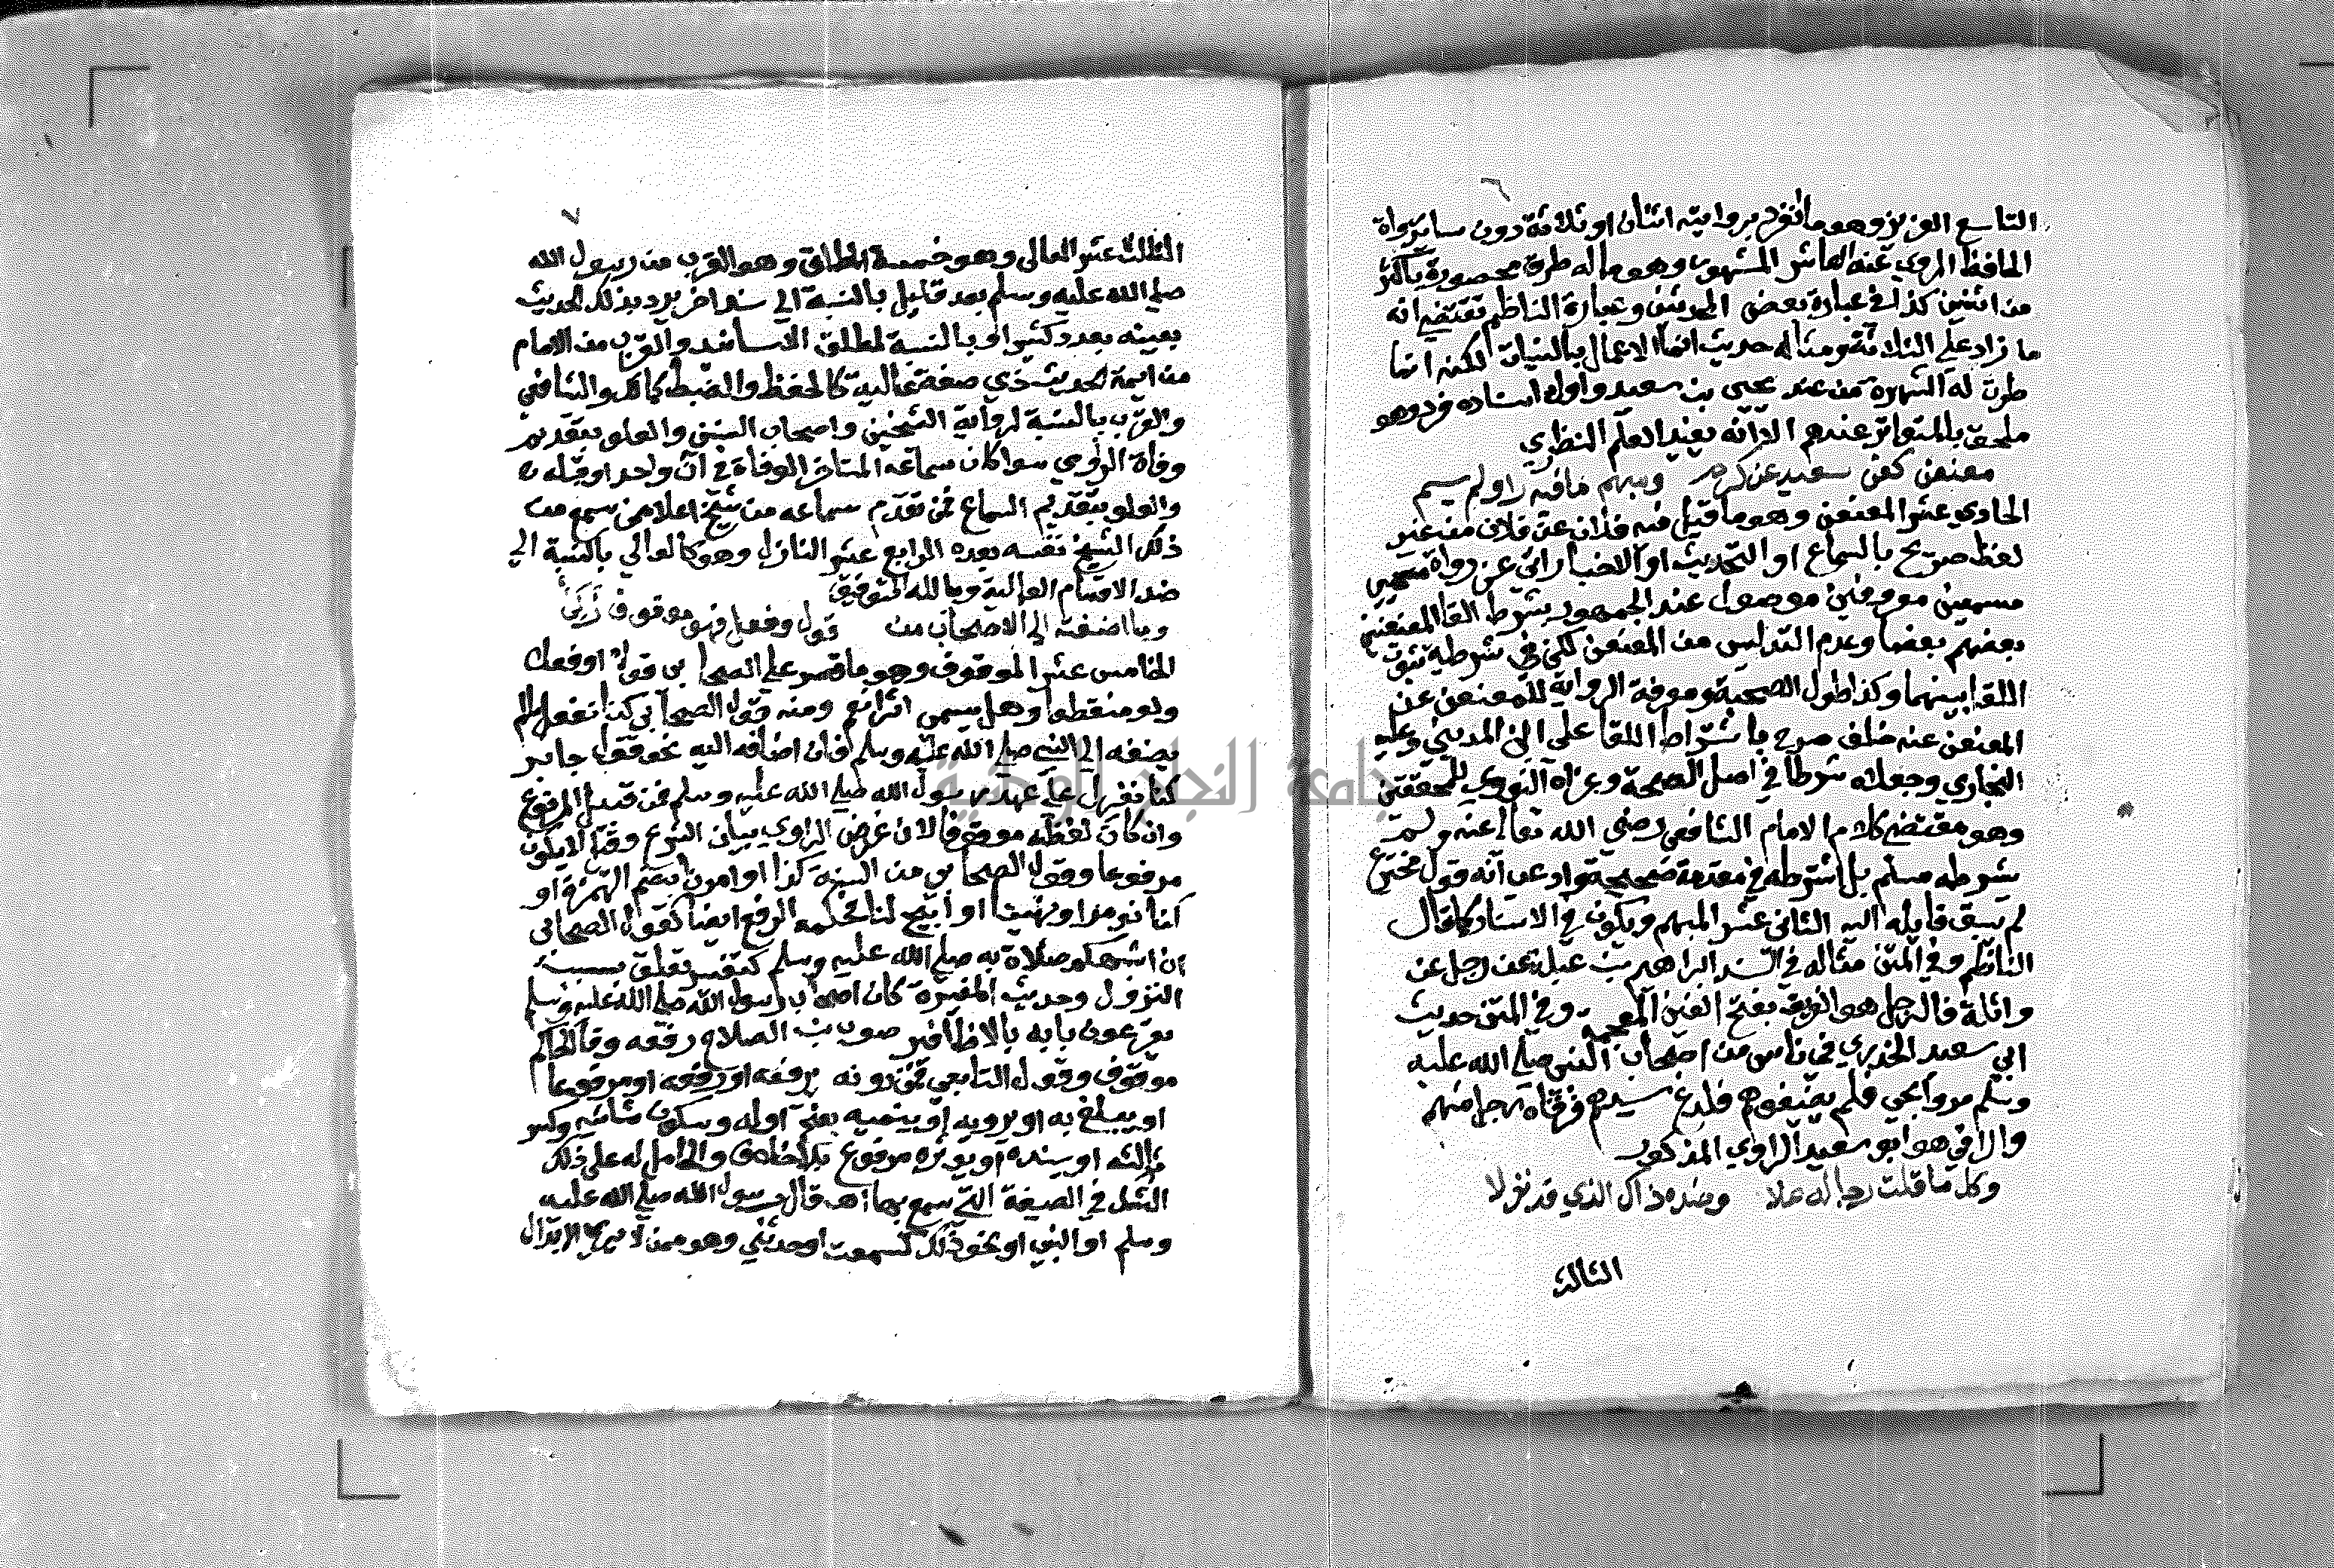 ٦
التاسع العزيز وهو ما انفرد بروايته اثنان او ثلاثة دون سائر رواة
الحافظ المروي عنه العاشر المشهور وهو ماله طرق محصورة باكثر
من اثنين كذا في عبارة بعض المحدثين وعبارة الناظم تقتضي انه
ما زاد على الثلاثة ومثاله حديث انما الاعمال بالنيات لكنه انما
طرت له الشهرة من عند يحيى بن سعيد واول اسناده فرد وهو
ملحق بالمتواتر عندهم الا انه يفيد العلم النظري
معنعن كعن سعيد عن كرم ومبهم ما فيه راو لم يسم
الحادي عشر المعنعن وهو ما قيل فيه فلان عن فلان من غير
لفظ صريح بالسماع او التحديث او الاخبار اتى عن رواة
مسمين معروفين موصول عند الجمهور بشرط لقا المعنعنين
بعضهم بعضا وعدم التدليس من المعنعن لكن في شرطية ثبوت
اللقا بينهما وكذا طول الصحبة ومعرفة الرواية للمعنعن عن
المعنعن عنه خلف صرح باشتراط اللقا على ابن المديني وعليه
البخاري وجعلاه شرطا في اصل الصحة وعزاه النووي للمحققين
وهو مقتضى كلام الامام الشافعي رضي الله تعالى عنه ولم
يشرطه مسلم بل اشترطه في مقدمة صحيحه وادعى انه قول مخترع
لم يسبق قايله اليه الثاني عشر المبهم ويكون في الاسناد كما قال
الناظم وفي المتن مثاله في السند ابراهيم بن عبلة عن رجل عن
واثلة فالرجل هو الغريف بفتح الغين المعجمة وفي المتن حديث
ابي سعيد الخدري في ناس من اصحاب النبي صلى الله عليه
وسلم مروا بحي فلم يضيفوهم فلدغ سيدهم فرقاه رجل منهم
والراقي هو ابو سعيد الراوي المذكور
وكل ما قلت رجاله علا وضده ذاك الذي قد نزلا
الثالث
٧
الثالث عشر العالي وهو خمسة المطلق وهو القرب من رسول الله
صلى الله عليه وسلم بعدد قليل بالنسبة الى سند اخر يرد بذلك الحديث
بعينه بعدد كثير او بالنسبة لمطلق الاسانيد والقرب من الامام
من ايمة الحديث ذي صفة عالية كالحفظ والضبط كمالك والشافعي
والقرب بالنسبة لرواية الشيخين واصحاب السنن والعلو بتقديم
وفاة الراوي سوا كان سماعه المتاخر الوفاة في آن واحد او قبله
والعلو بتقديم السماع فمن تقدم سماعه من شيخ اعلا ممن سمع من
ذلك الشيخ نفسه بعده الرابع عشر النازل وهو كالعالي بالنسبة الى
ضد الاقسام العالية وبالله التوفيق
وما اضفته الى الاصحاب من قول وفعل فهو موقوف زكن
الخامس عشر الموقوف وهو ما قصر على الصحابي قولا او فعلا
ولو منقطعا وهل يسمى اثرا نعم ومنه قول الصحابي كنا نفعل ما لم
يضفه الى النبي صلى الله عليه وسلم فان اضافه اليه نحو قول جابر
كنا نعزل على عهد رسول الله صلى الله عليه وسلم فمن قبيل المرفوع
وان كان لفظه موقوفا لان غرض الراوي بيان الشرع وقيل لا يكون
مرفوعا وقول الصحابي من السنة كذا او امرنا بضم الهمزة او
كنا نومر او نهينا او ابيح لنا فحكمه الرفع ايضا كقول الصحابي
انا اشبهكم صلاة به صلى الله عليه وسلم كتفسير تعلق بسبب
النزول وحديث المغيرة كان اصحاب رسول الله صلى الله عليه وسلم
يقرعون بابه بالاظافير صوب ابن الصلاح رفعه وقال الحاكم
موقوف وقول التابعي فمن دونه يرفعه او رفعه او مرفوعا
او يبلغ به او يرويه او ينميه بفتح اوله وسكون ثانيه وكسر
ثالثه او يسنده او يوثره مرفوع بلا خلاف والحامل له على ذلك
الشك في الصيغة التي سمع بها اهي قال رسول الله صلى الله عليه
وسلم او النبي او نحو ذلك كسمعت او حدثني وهو ممن لا يرى الابدال
جامعة النجاح الوطنية